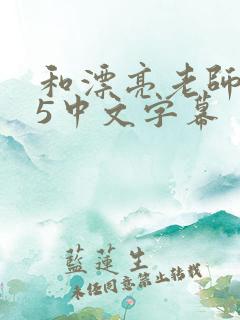 和漂亮老師
5中文字幕
藍蓮生
未經同意禁止轉載